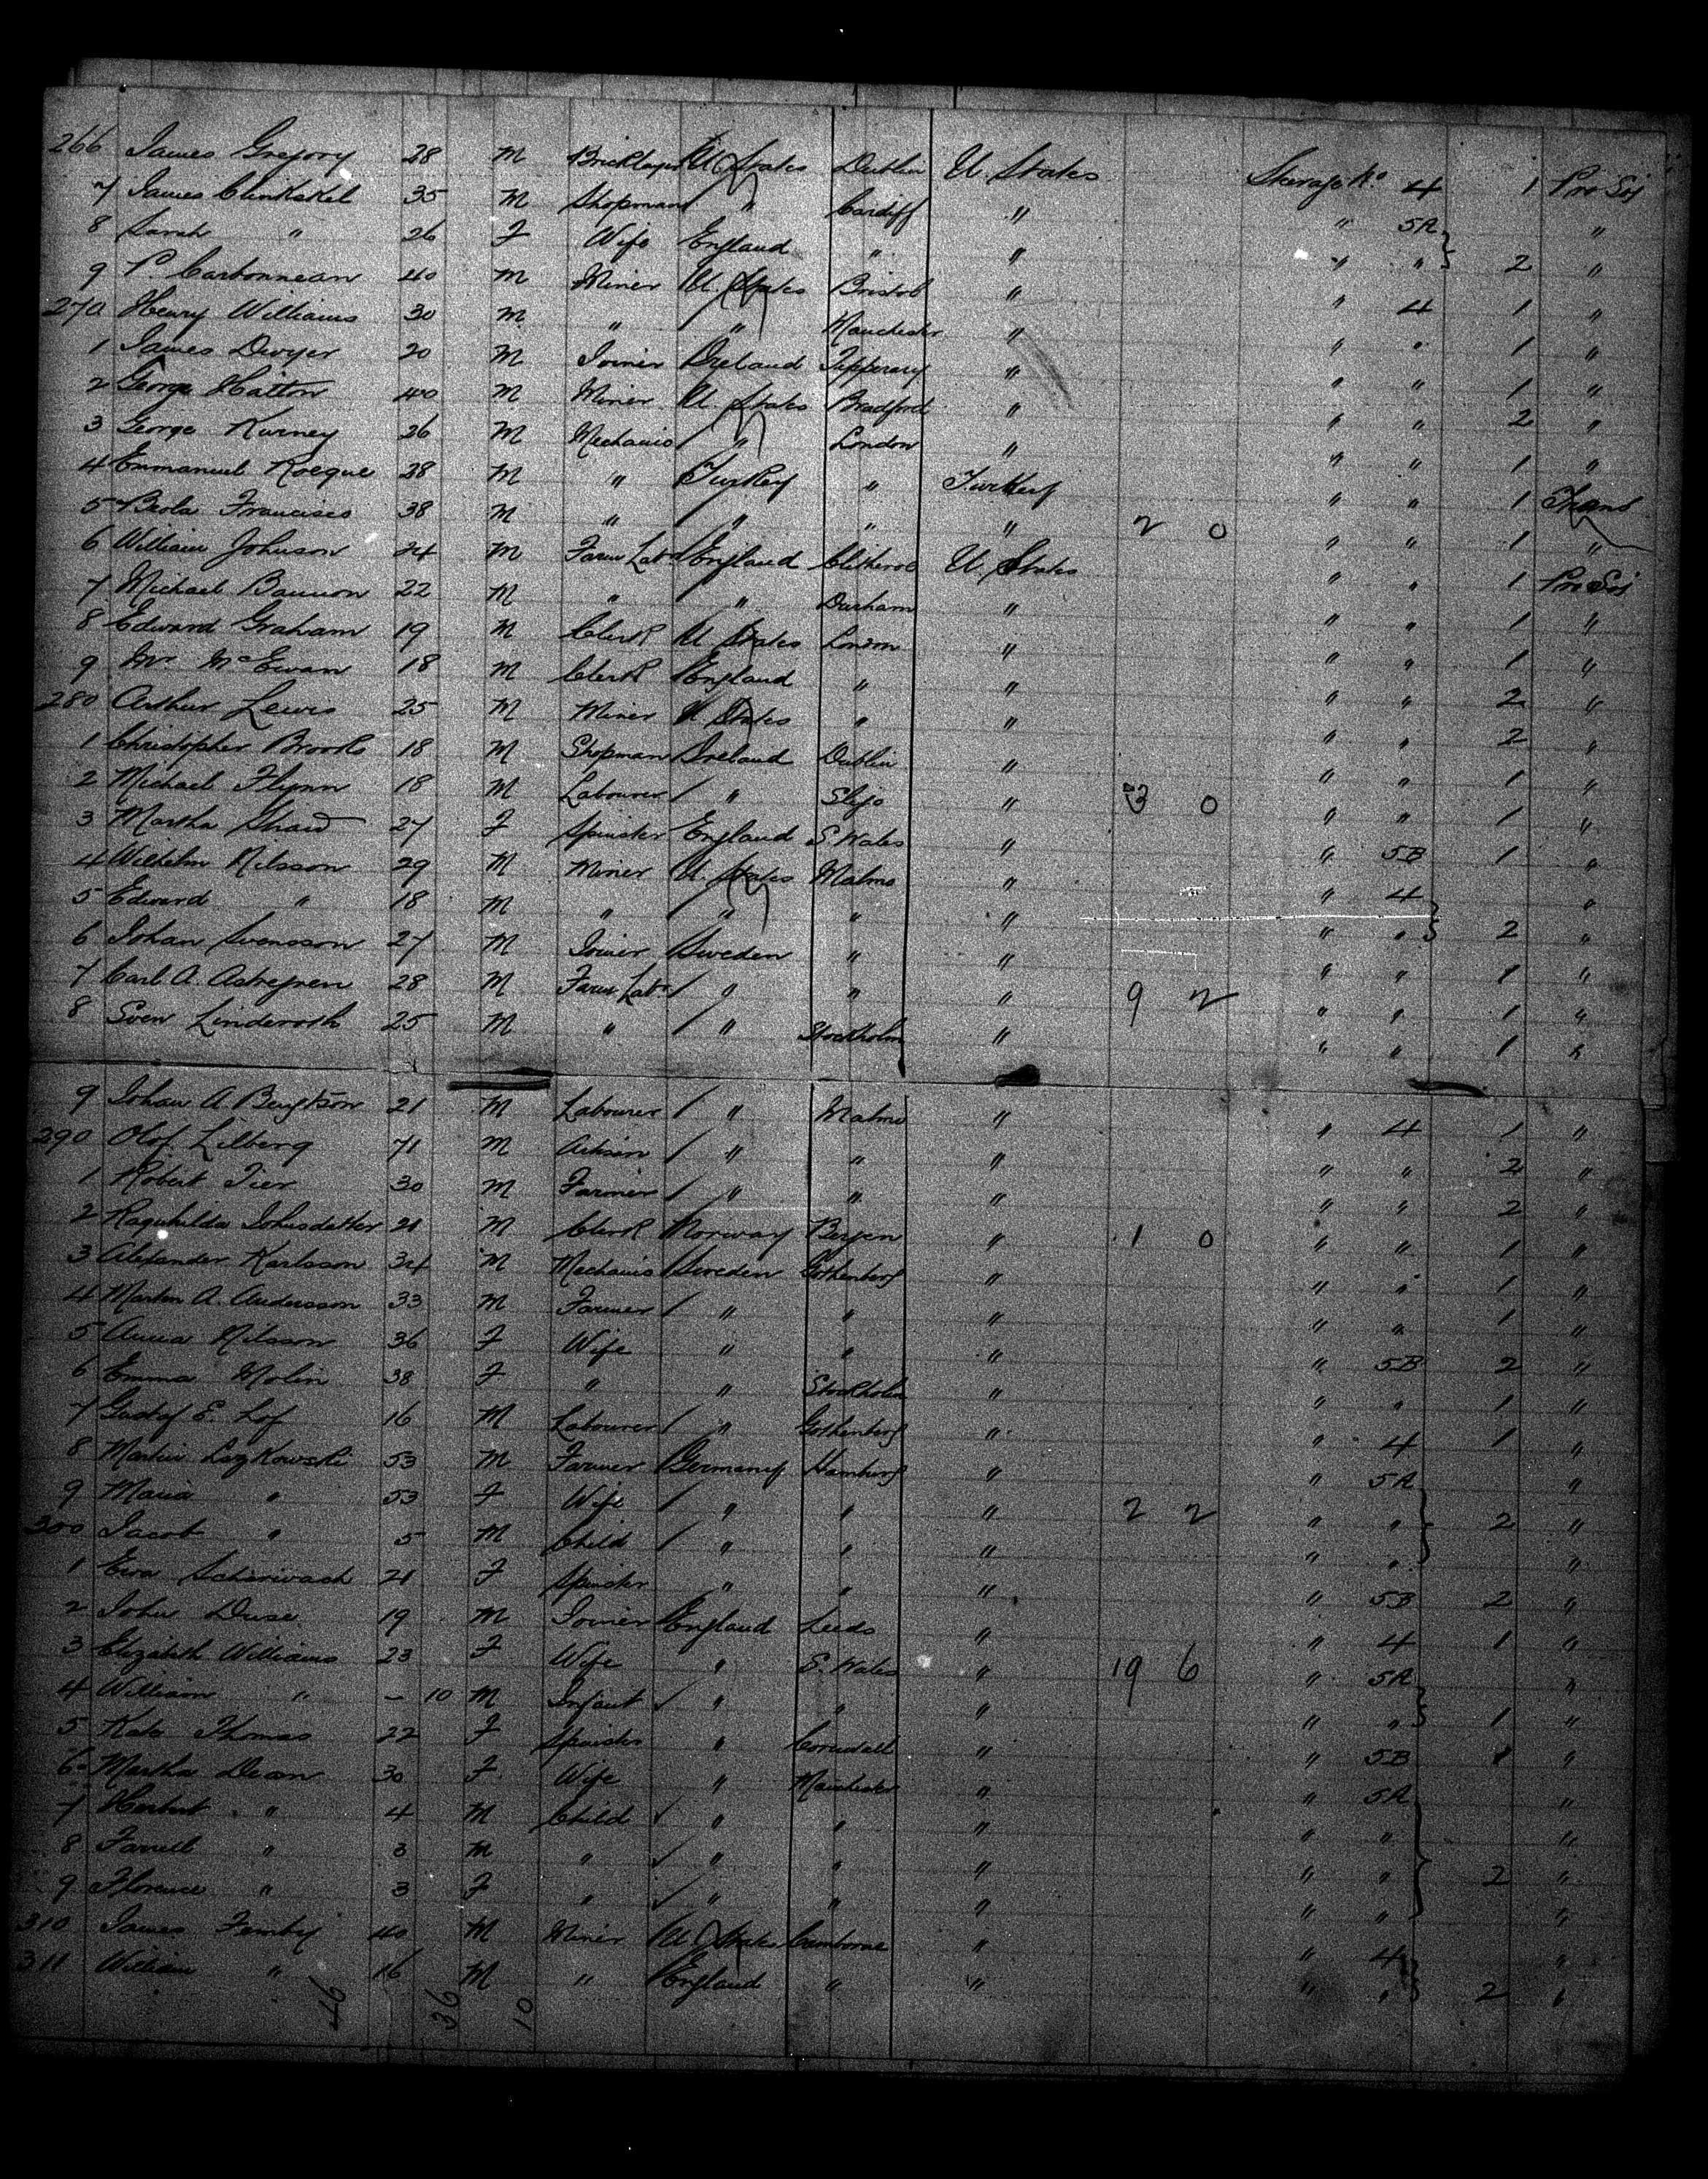 266 James Gregory 28 M Bricklayer U States Dublin U. States Steerage No 4 1 Pro Soj
7 James Clinkskel 35 M Shopman " Cardiff " " 5A "
8 Sarah " 26 F Wife England " " " " 2 "
9 P. Carbonnean 40 M Miner U. States Bristol " " 4 1 "
270 Henry Williams 30 M " " Manchester " " " 1 "
1 James Dwyer 20 M Joiner Ireland Tipperary " " " 1 "
2 George Hatton 40 M Miner U States Bradford " " " 2 "
3 George Kurney 26 M Mechanic " London " " " 1 "
4 Emmanuel Rocque 28 M " Turkey " Turkey " " 1 Trans
5 Francisco 38 M " " " " 2 0 " " 1 "
6 William Johnson 24 M Farm Labr England Clitheroe U. States " " 1 Pro Soj
7 Michael Bannon 22 M " " Durham " " " 1 "
8 Edward Graham 19 M Clerk U States London " " " 1 "
9 Mr McEwan 18 M Clerk England " " " " 2 "
280 Arthur Lewis 25 M Miner U States " " " " 2 "
1 Christopher Brooks 18 M Shopman Ireland Dublin " " " 1 "
2 Michael Flynn 18 M Labourer " Sligo " 3 0 " " 1 "
3 Martha Shaw 27 F Spinster England S. Wales " " 5B 1 "
4 Wilhelm Nilsson 29 M Miner U. States Malmo " " 4 "
5 Edward " 18 M " " " " " " 2 "
6 Johan Svensson 27 M Joiner Sweden " " " " 1 "
7 Carl A. Astregren 28 M Farm Labr " " " 9 2 " " 1 "
8 Sven Linderoth 25 M " " Stockholm " " " 1 "
9 Johan A Bengtson 21 M Labourer " Malmo " " 4 1 "
290 Olof Lilberg 71 M Artisan " " " " " 2 "
1 Robert Tier 30 M Farmer " " " " " 2 "
2 Ragnhilda Johnsdatter 21 M Clerk Norway Bergen " 1 0 " " 1 "
3 Alexander Karlsson 34 M Mechanic Sweden Gothenberg " " " 1 "
4 Marten A. Andersson 33 M Farmer " " " " " 1 "
5 Anna Nilsson 36 F Wife " " " " 5B 2 "
6 Emma Molin 38 F " " Stockholm " " " 1 "
7 Gustaf E. Lof 16 M Labourer " Gothenberg " " 4 1 "
8 Martin Lazkowski 53 M Farmer Germany Hamburg " " 5A "
9 Maria " 53 F Wife " " " 2 2 " " 2 "
300 Jacob " 5 M Child " " " " "
1 Eva Scheriwach 21 F Spinster " " " " 5B 2 "
2 John Duse 19 M Joiner England Leeds " " 4 1 "
3 Elizabeth Williams 23 F Wife " S. Wales " 19 6 " 5A "
4 William " - 10 M Infant " " " " " 1 "
5 Kate Thomas 22 F Spinster " Cornwall " " 5B 1 "
6 Martha Dean 30 F Wife " Manchester " " 5A "
7 Herbert " 4 M Child " " " " " "
8 Farrell " 3 M " " " " " " 2 "
9 Florence " 3 F " " " " " " "
310 James Femby 40 M Miner U States Camborne " " 4 "
311 William " 16 M " England " " " " 2 "
46 36 10